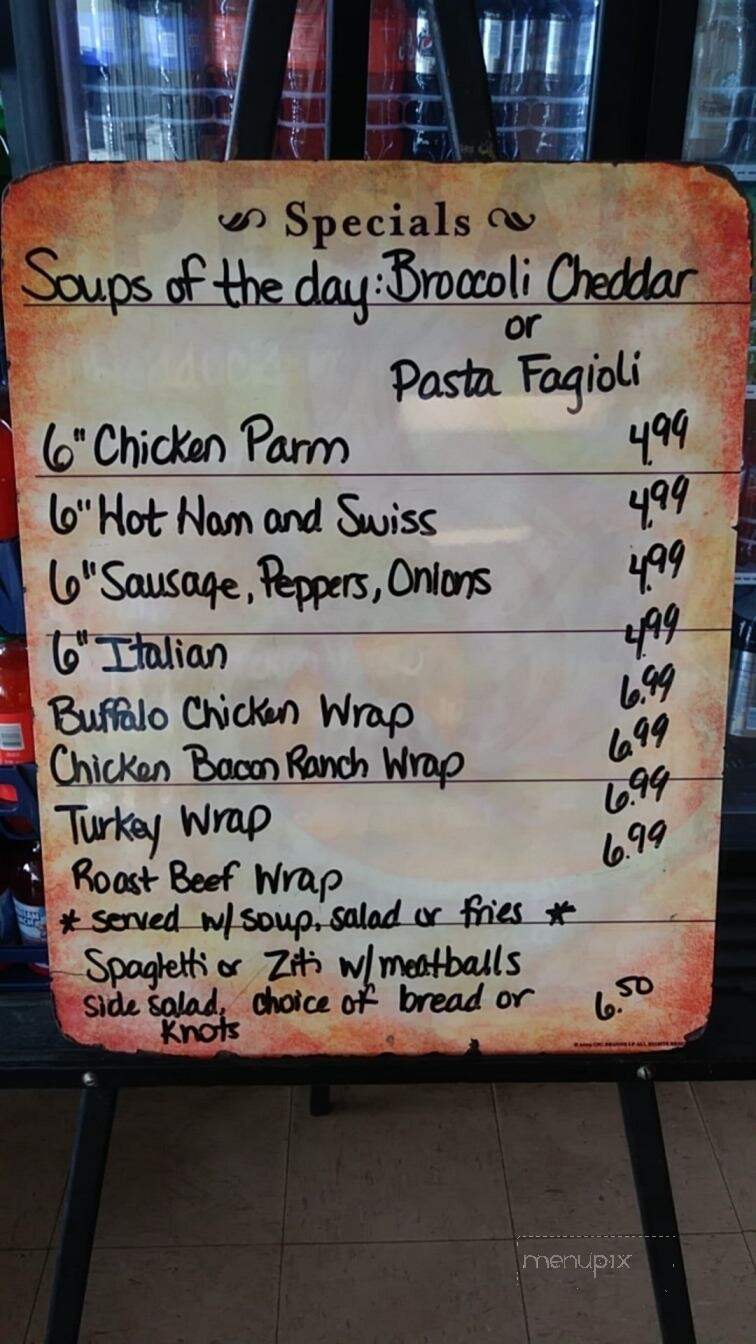 Specials
Soups of the day: Broccoli Cheddar
or
Pasta Fagioli
6" Chicken Parm 4.99
6" Hot Ham and Swiss 4.99
6" Sausage, Peppers, Onions 4.99
6" Italian 4.99
Buffalo Chicken Wrap 6.99
Chicken Bacon Ranch Wrap 6.99
Turkey Wrap 6.99
Roast Beef Wrap 6.99
* served w/ soup, salad or fries *
Spaghetti or Ziti w/ meatballs
side salad, choice of bread or 6.50
Knots
menupix